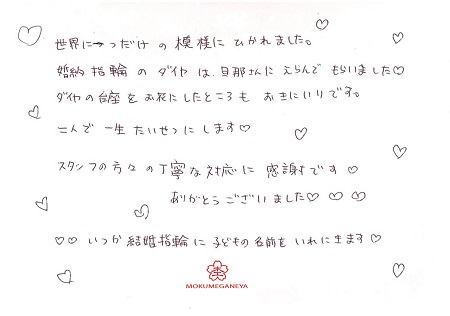 世界に一つだけ の 模様に ひかれました。
婚約指輪 の ダイヤ は、旦那さんに えらんで もらいました♡
ダイヤの台座を お花に したところも お気にいりです。
二人で 一生 たいせつに します♡
スタッフの方々 の 丁寧な対応に 感謝です♡
ありがとう ございました♡ ♡ ♡
♡♡ いつか 結婚指輪に 子どもの 名前を いれにきます♡
MOKUMEGANEYA